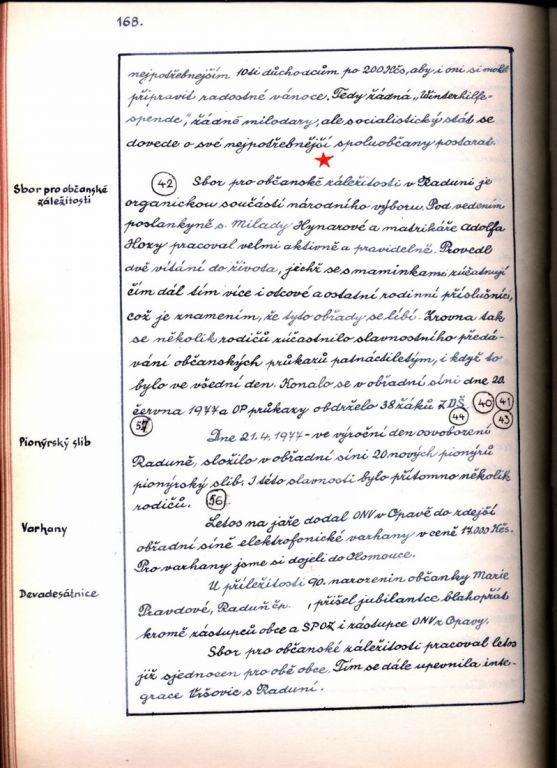 168.
nejpotřebnejším 10ti důchodcům po 200 Kčs, aby i oni si mohli
připravit radostné vánoce. Tedy žádná „Winterhilfe-
spende", žádné milodary, ale socialistický stát se
dovede o své nejpotřebnější spoluobčany postarat.
Sbor pro občanské
záležitosti
42 Sbor pro občanské záležitosti v Raduni je
organickou součástí národního výboru. Pod vedením
poslankyně s. Milady Hynarové a matrikáře Adolfa
Hoxy pracoval velmi aktivně a pravidelně. Provedl
dvě vítání do života, jichž se s maminkami zúčastnují
čím dál tím více i otcové a ostatní rodinní příslušníci,
což je znamením, že tyto obřady se líbí. Zrovna tak
se několik rodičů zúčastnilo slavnostního předá-
vání občanských průkazů patnáctiletým, i když to
bylo ve všední den. Konalo se v obřadní síni dne 20.
června 1977 a OP průkazy obdrželo 38 žáků ZDŠ. 40 41
57 44 43
Pionýrský slib
Dne 21. 4. 1977 - ve výroční den osvobození
Raduně, složilo v obřadní síni 20 nových pionýrů
pionýrský slib. I této slavnosti bylo přítomno několik
rodičů. 56
Varhany
Letos na jaře dodal ONV v Opavě do zdejší
obřadní síně elektrofonické varhany v ceně 17.000 Kčs.
Pro varhany jsme si dojeli do Olomouce.
Devadesátnice
U příležitosti 90. narozenin občanky Marie
Pravdové, Raduň čp. , přišel jubilantce blahopřát
kromě zástupců obce a SPOZ i zástupce ONV z Opavy.
Sbor pro občanské záležitosti pracoval letos
již sjednocen pro obě obce. Tím se dále upevnila inte-
grace Vršovic s Raduní.